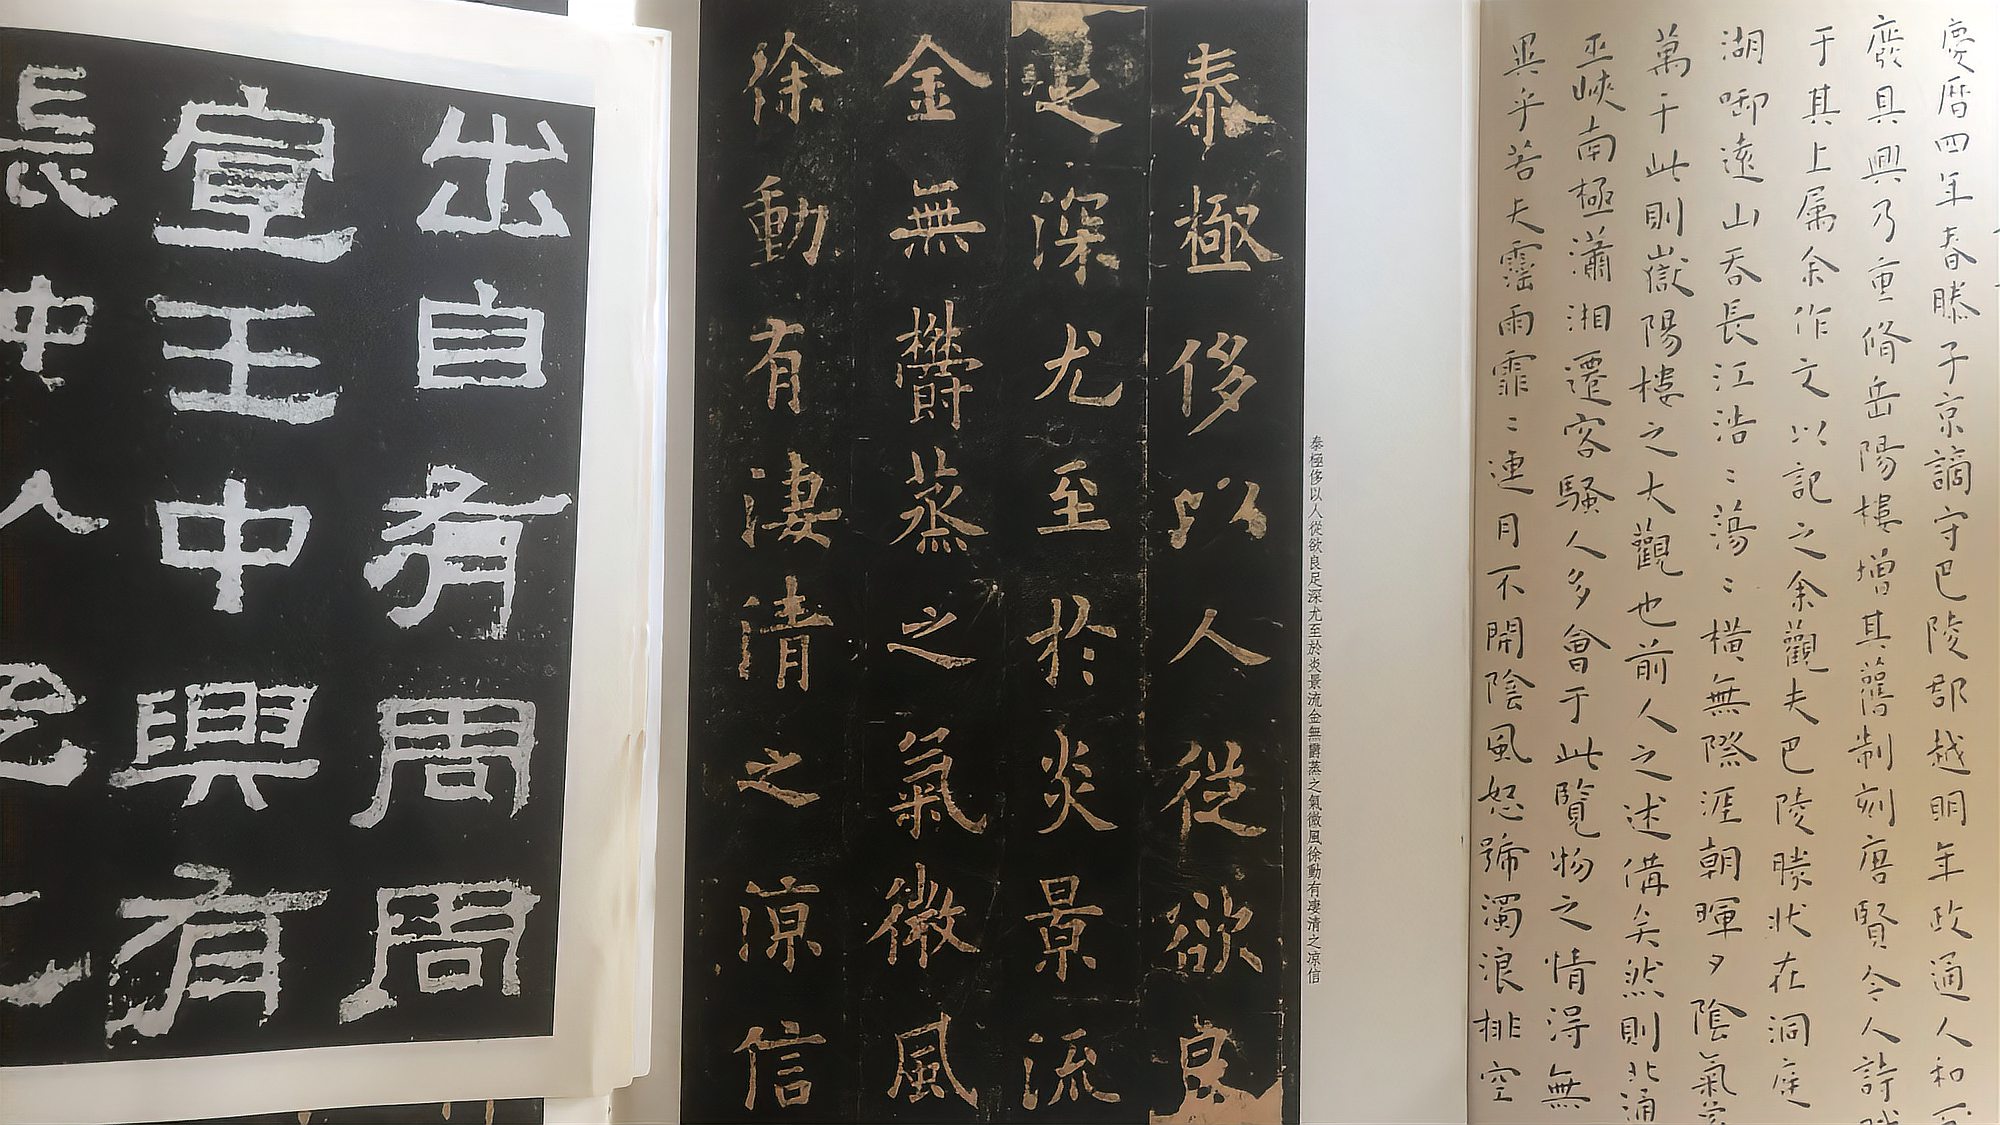 慶暦四年春滕子京謫守巴陵郡越明年政通人和
廢具興乃重脩岳陽樓增其舊制刻唐賢今人詩
于其上属余作文以記之余觀夫巴陵勝狀在洞庭
湖啣遠山吞長江浩〻蕩〻橫無際涯朝暉夕陰氣
萬千此則嶽陽樓之大觀也前人之述備矣然則北通
巫峽南極瀟湘遷客騷人多會于此覽物之情得無
異乎若夫霪雨霏〻連月不開陰風怒號濁浪排空
泰極侈以人從欲良足深尤至於炎景流金無欝蒸之氣微風徐動有凄清之凉信
泰極侈以人從欲良
足深尤至於炎景流
金無欝蒸之氣微風
徐動有凄清之凉信
出自有周周
宣王中興有